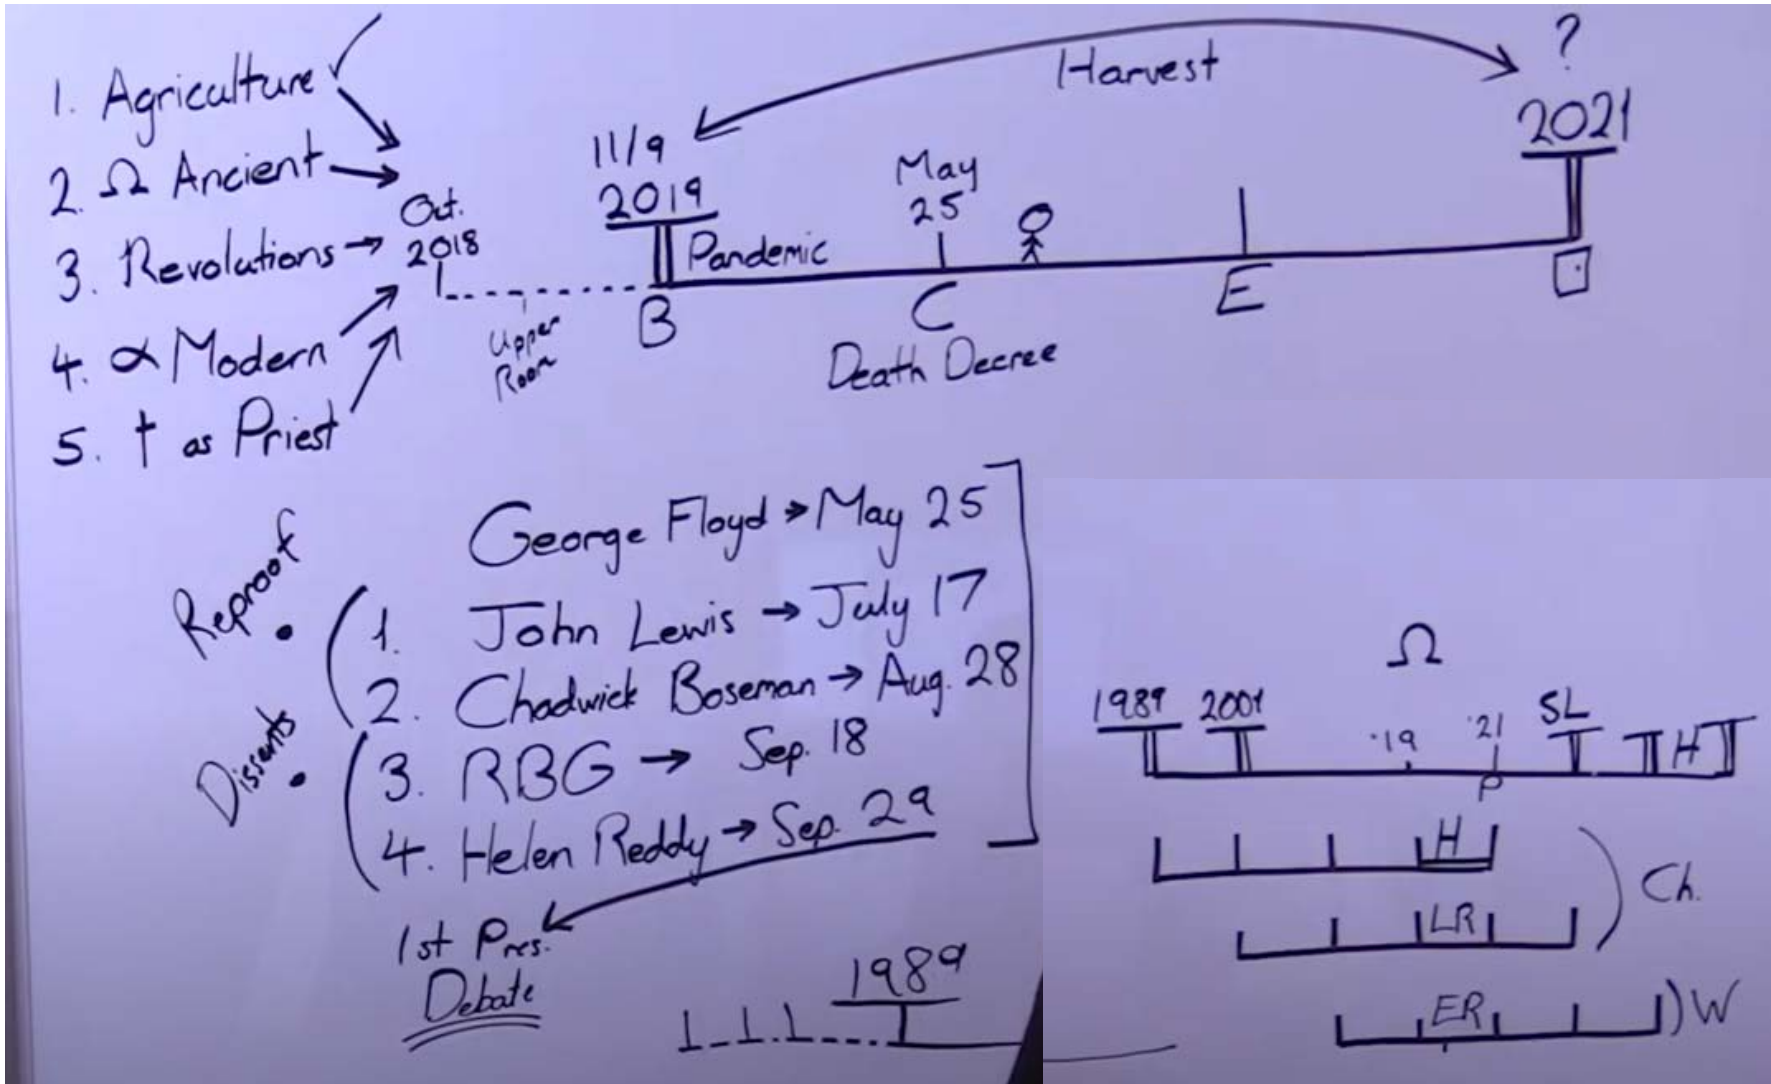 1. Agriculture
2. Ω Ancient
3. Revolutions →
4. α Modern
5. † as Priest
Oct.
2018
Upper
Room
11/9
2019
Pandemic
B
Harvest
May
25
C
Death Decree
E
?
2021
Reproof
Dissents
George Floyd → May 25
1. John Lewis → July 17
2. Chadwick Boseman → Aug. 28
3. RBG → Sep. 18
4. Helen Reddy → Sep. 29
1st Pres.
Debate
1989
Ω
1989 2001 '19 '21 SL H
P
H
LR
Ch.
ER
W